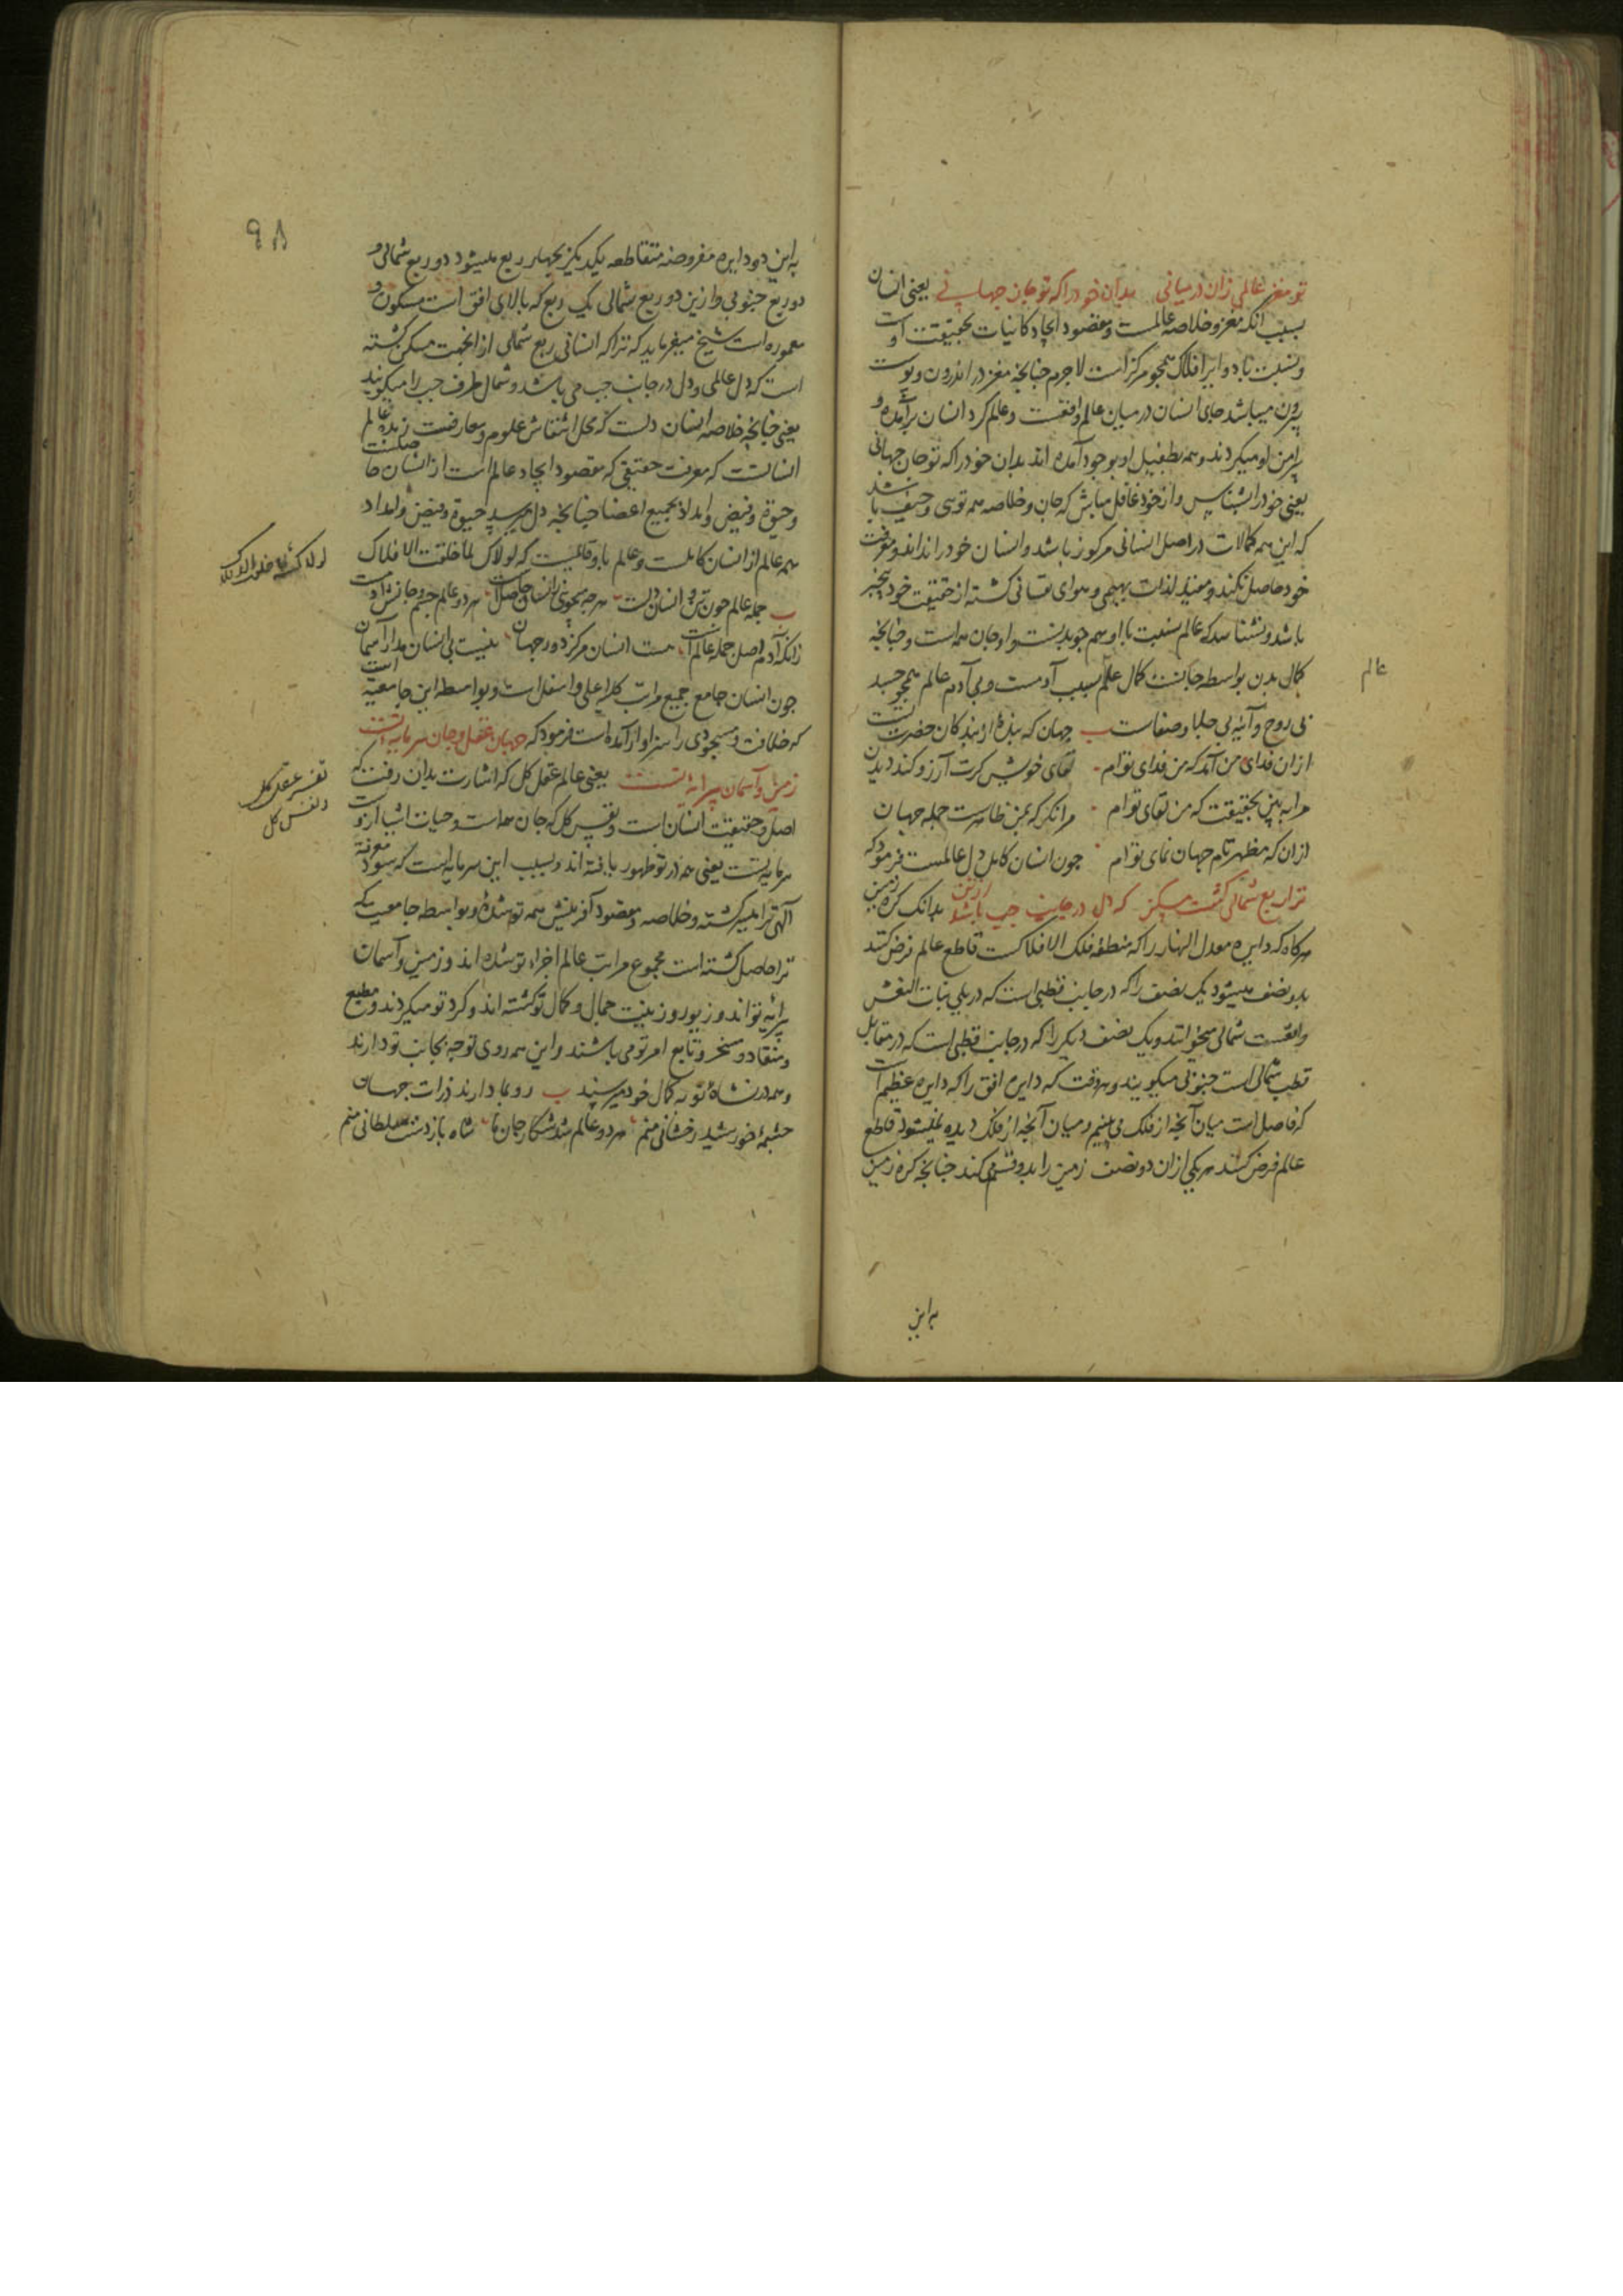 تو مغز عالمی زان در میانی بدان خود را که تو جان جهانی یعنی انسان
بسبب آنکه مغز و خلاصه عالمست و مقصود ایجاد کاینات بحقیقت اوست
و نسبت با دوایر افلاک همچو مرکز است لاجرم چنانچه مغز در اندرون و پوست
بیرون میباشد جای انسان در میان عالم واقعست و عالم کرد انسان برآمده و
پیرامن او میکردند و همه بطفیل او بوجود آمده اند بدان خود را که تو جان جهانی
یعنی خود را بشناس و از خود غافل مباش که جان و خلاصه همه توسی و حیف باشد
که این همه کمالات در اصل انسانی مرکوز باشد و انسان خود را نداند و معرفت
خود حاصل نکند و مقید لذات بهیمی و هوای نفسانی کشته از حقیقت خود بیخبر
باشد و نشناسد که عالم بنسبت با او همچو بدنست و او جان همه است و چنانچه
کمال بدن بواسطه جانست کمال عالم بسبب آدمست و بی آدم عالم همچو جسد
عالم
بی روح و آینه بی جلا و صفاست جهان که بنده از بندکان حضرت تست
ازان فدای من آمد که من فدای توام لقای خویش کرت آرزو کند دیدن
مرا ببین بحقیقت که من لقای توام مرا نکر که بمن ظاهرست جمله جهان
ازان که مظهر تام جهان نمای توام چون انسان کامل دل عالمست فرمود که
ترا ربع شمالی کشت مسکن که دل در جانب چپ باشد از تن بدانک کره زمین
هرکاه که دایره معدل النهار را که منطقه فلک الافلاکست قاطع عالم فرض کنند
بدو نصف میشود یک نصف را که در جانب قطبی است که در یلی بنات النعش
واقعست شمالی میخوانند و یک نصف دیکر را که در جانب قطبی است که در مقابل
قطب شمالی است جنوبی میکویند و هر وقت که دایره افق را که دایره عظیم است
که فاصل است میان آنچه از فلک می بینیم و میان آنچه از فلک دیده نمیشود قاطع
عالم فرض کنند هر یکی ازان دو نصف زمین را بدو قسم میکند چنانچه کره زمین
براین
۹۸
به این دو دایره مفروضه متقاطعه یکدیکر بچهار ربع میشود دو ربع شمالی و
دو ربع جنوبی و ازین دو ربع شمالی یک ربع که بالای افق است مسکون و
معموره است شیخ میفرماید که ترا که انسانی ربع شمالی از آنجهت مسکن کشته
است که دل عالمی و دل در جانب چپ می باشد و شمال طرف چپ را میکویند
یعنی چنانچه خلاصه انسان دلست که محل انتقاش علوم و معارفست زبده عالم
انسانست که معرفت حقیقی که مقصود ایجاد عالم است از انسان حاصلست
و حیوة و فیض و امداد بجمیع اعضا چنانچه از دل میرسد حیوة و فیض و امداد
همه عالم از انسان کاملست و عالم باو قایمست که لولاک لما خلقت الافلاک
لولاک لما خلقت الافلاک
جمله عالم چون تن و انسان دلست هرچه میجویی ز انسان حاصلست هر دو عالم جسم و جانش آدمست
زانکه آدم اصل جمله عالم است هست انسان مرکز دور جهان نیست بی انسان مدار آسمان
چون انسان جامع جمیع مراتب کلیه اعلی و اسفل است و بواسطه این جامعیة است
که خلافت و مسجودی را سزاوار آمده است فرمود که جهان عقل و جان سرمایه تست
زمین و آسمان پیرایه تست یعنی عالم عقل کل که اشارت بدان رفت که
تفسیر عقل کل
و نفس کل
اصل و حقیقت انسان است و نفس کل که جان همه است و حیات اشیا ازوست
سرمایه تست یعنی همه در تو ظهور یافته اند و بسبب این سرمایه است که سود معرفة
آلهی ترا میسر کشته و خلاصه و مقصود آفرینش همه تو شدهٔ و بواسطه جامعیت که
ترا حاصل کشته است مجموع مراتب عالم اجزاء تو شده اند و زمین و آسمان
پیرایه تو اند و زیور و زینت جمال و کمال تو کشته اند و کرد تو میکردند و مطیع
و منقاد و مسخر و تابع امر تو می باشند و این همه روی توجه بجانب تو دارند
و همه در نشاهٔ تو به کمال خود میرسند رو بما دارند ذرات جهان
چشمهٔ خورشید رخشانی منم هر دو عالم شد شکار جان ما شاه باز دست سلطانی منم